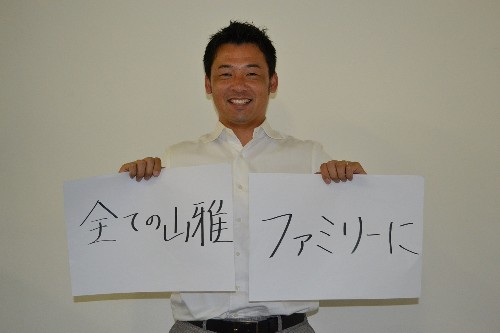 全ての山雅
ファミリーに